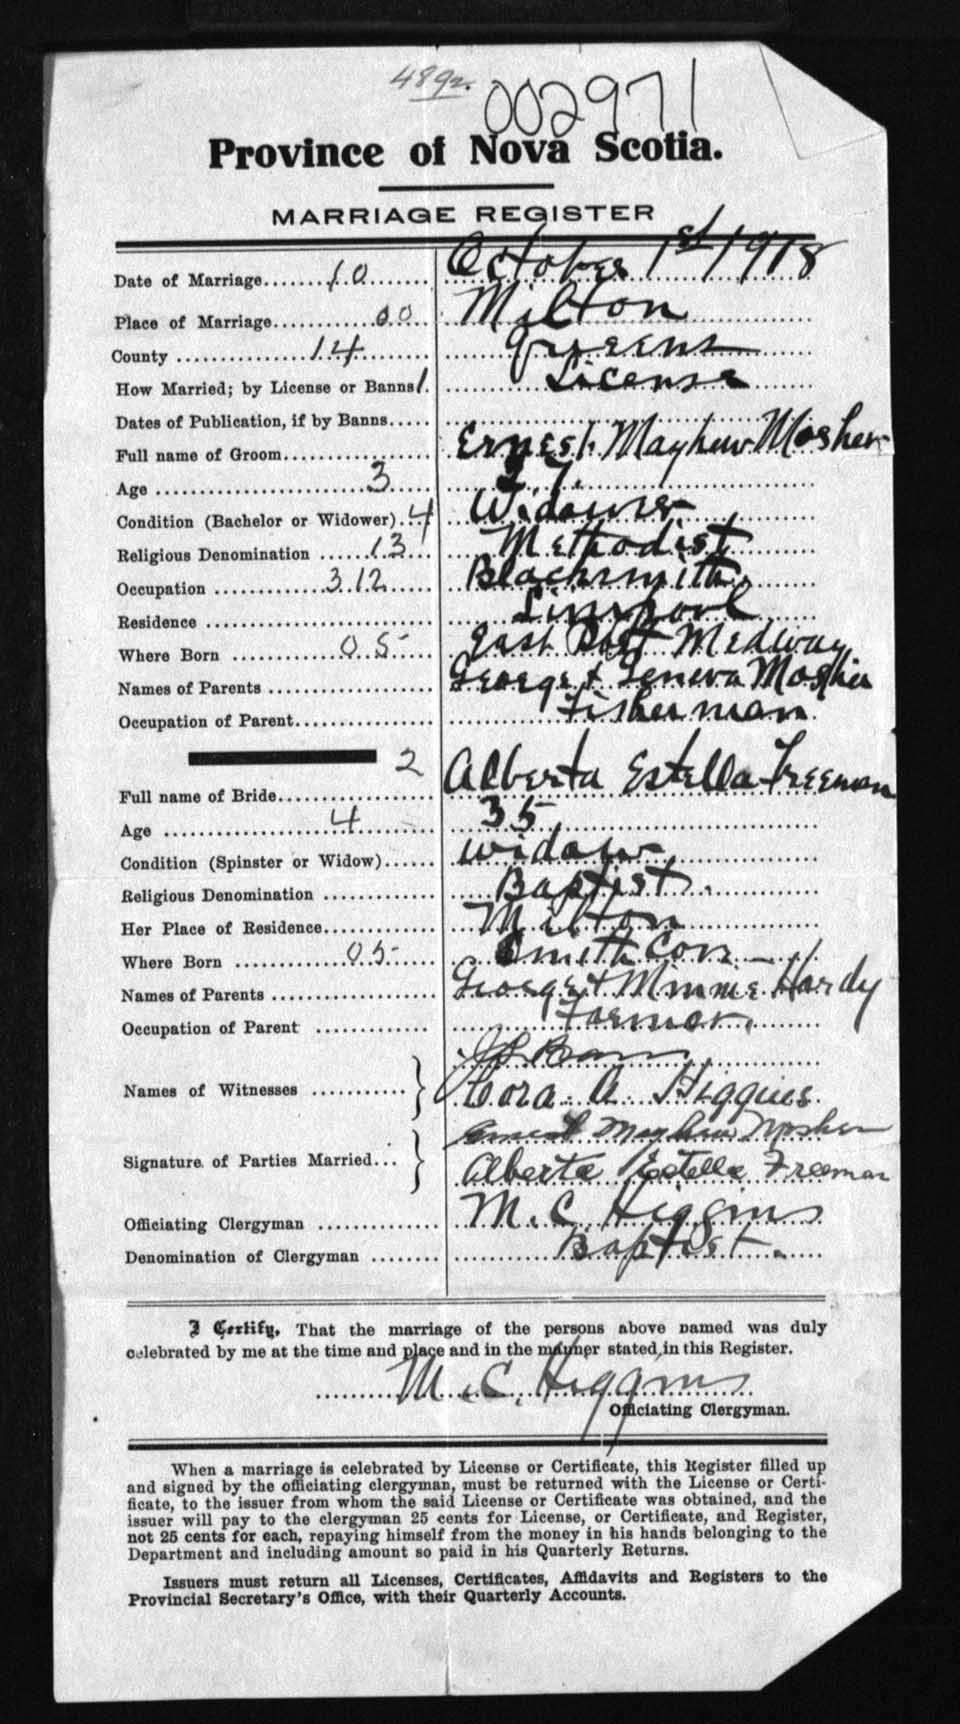 002971
Province of Nova Scotia.
MARRIAGE REGISTER
Date of Marriage 10 October 1st 1918
Place of Marriage 00 Milton
County 14 Queens
How Married; by License or Banns 1 License
Dates of Publication, if by Banns
Full name of Groom Ernest Mayhew Mosher
Age 3 37
Condition (Bachelor or Widower) 4 Widower
Religious Denomination 13 Methodist
Occupation 312 Blacksmith
Residence Liverpool
Where Born 05 East Port Medway
Names of Parents George & Geneva Mosher
Occupation of Parent Fisherman
2
Full name of Bride Alberta Estella Freeman
Age 4 35
Condition (Spinster or Widow) widow
Religious Denomination Baptist.
Her Place of Residence Milton
Where Born 05 Smith Cove
Names of Parents George & Minnie Hardy
Occupation of Parent Farmer.
Names of Witnesses
Cora A Higgins
Signature of Parties Married Ernest Mayhew Mosher
Alberta Estella Freeman
Officiating Clergyman M. C Higgins
Denomination of Clergyman Baptist.
I Certify, That the marriage of the persons above named was duly
celebrated by me at the time and place and in the manner stated in this Register.
M. C. Higgins
Officiating Clergyman.
When a marriage is celebrated by License or Certificate, this Register filled up
and signed by the officiating clergyman, must be returned with the License or Certi-
ficate, to the issuer from whom the said License or Certificate was obtained, and the
issuer will pay to the clergyman 25 cents for License, or Certificate, and Register,
not 25 cents for each, repaying himself from the money in his hands belonging to the
Department and including amount so paid in his Quarterly Returns.
Issuers must return all Licenses, Certificates, Affidavits and Registers to the
Provincial Secretary's Office, with their Quarterly Accounts.